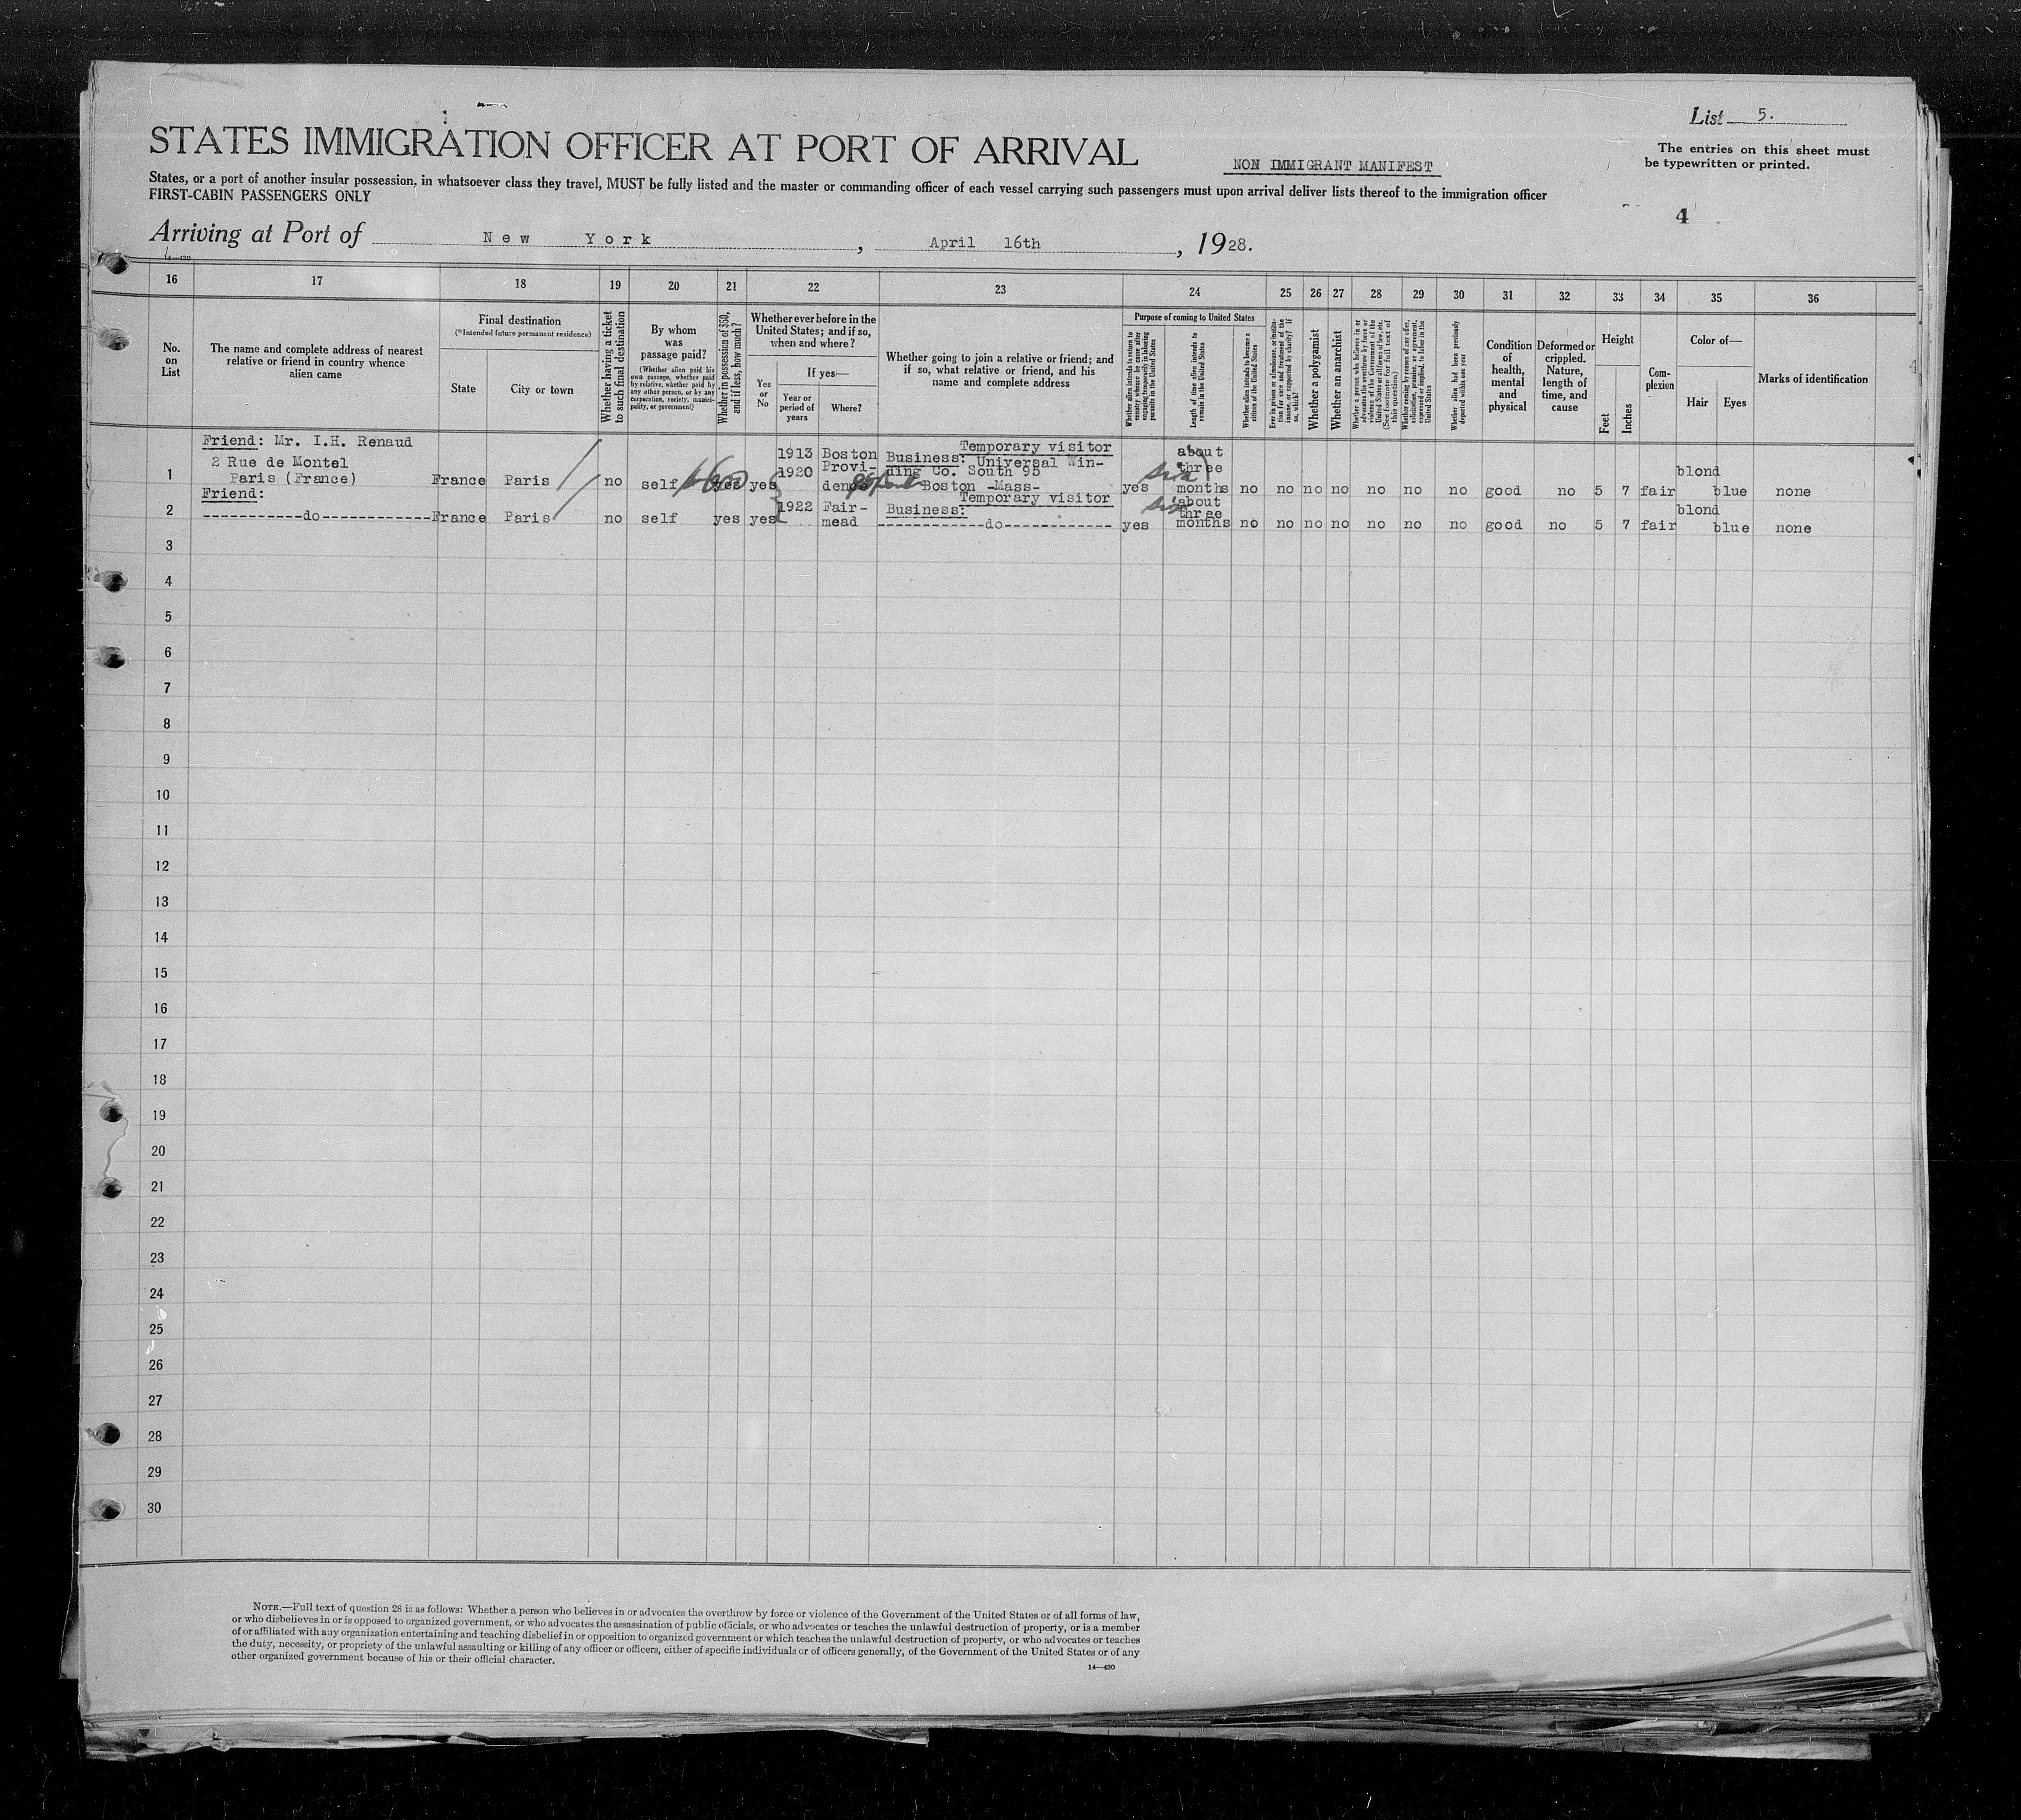 List 5.
STATES IMMIGRATION OFFICER AT PORT OF ARRIVAL
NON IMMIGRANT MANIFEST
The entries on this sheet must
be typewritten or printed.
States, or a port of another insular possession, in whatsoever class they travel, MUST be fully listed and the master or commanding officer of each vessel carrying such passengers must upon arrival deliver lists thereof to the immigration officer
FIRST-CABIN PASSENGERS ONLY
4
Arriving at Port of New York, April 16th, 1928.
14—430
16 17 18 19 20 21 22 23 24 25 26 27 28 29 30 31 32 33 34 35 36
No.
on
List
The name and complete address of nearest
relative or friend in country whence
alien came
Final destination
(*Intended future permanent residence)
State
City or town
Whether having a ticket
to such final destination
By whom
was
passage paid?
(Whether alien paid his
own passage, whether paid
by relative, whether paid by
any other person, or by any
corporation, society, munici-
pality, or government)
Whether in possession of $50,
and if less, how much?
Whether ever before in the
United States; and if so,
when and where?
Yes
or
No
If yes—
Year or
period of
years
Where?
Whether going to join a relative or friend; and
if so, what relative or friend, and his
name and complete address
Purpose of coming to United States
Whether alien intends to return to
country whence he came after
engaging temporarily in laboring
pursuits in the United States
Length of time alien intends to
remain in the United States
Whether alien intends to become a
citizen of the United States
Ever in prison or almshouse, or institu-
tion for care and treatment of the
insane, or supported by charity? If
so, which?
Whether a polygamist
Whether an anarchist
Whether a person who believes in or
advocates the overthrow by force or
violence of the Government of the
United States or all forms of law, etc.
(See footnote for full text of
this question)
Whether coming by reason of any offer,
solicitation, promise, or agreement,
expressed or implied, to labor in the
United States
Whether alien had been previously
deported within one year
Condition
of
health,
mental
and
physical
Deformed or
crippled.
Nature,
length of
time, and
cause
Height
Feet
Inches
Com-
plexion
Color of—
Hair Eyes
Marks of identification
Friend: Mr. I.H. Renaud
2 Rue de Montel
Paris (France)
1 France Paris no self yes yes
1913 Boston
1920 Provi-
dence
Temporary visitor
Business: Universal Win-
ding Co. South 95
Boston -Mass-
yes
about
three
months
six
no no no no no no no good no 5 7 fair blond blue none
Friend:
2 ------------do------------ France Paris no self yes yes
1922 Fair-
mead
Temporary visitor
Business:
-------------do-------------
yes
about
three
months
six
no no no no no no no good no 5 7 fair blond blue none
3
4
5
6
7
8
9
10
11
12
13
14
15
16
17
18
19
20
21
22
23
24
25
26
27
28
29
30
NOTE.—Full text of question 28 is as follows: Whether a person who believes in or advocates the overthrow by force or violence of the Government of the United States or of all forms of law,
or who disbelieves in or is opposed to organized government, or who advocates the assassination of public officials, or who advocates or teaches the unlawful destruction of property, or is a member
of or affiliated with any organization entertaining and teaching disbelief in or opposition to organized government or which teaches the unlawful destruction of property, or who advocates or teaches
the duty, necessity, or propriety of the unlawful assaulting or killing of any officer or officers, either of specific individuals or of officers generally, of the Government of the United States or of any
other organized government because of his or their official character.
14—430